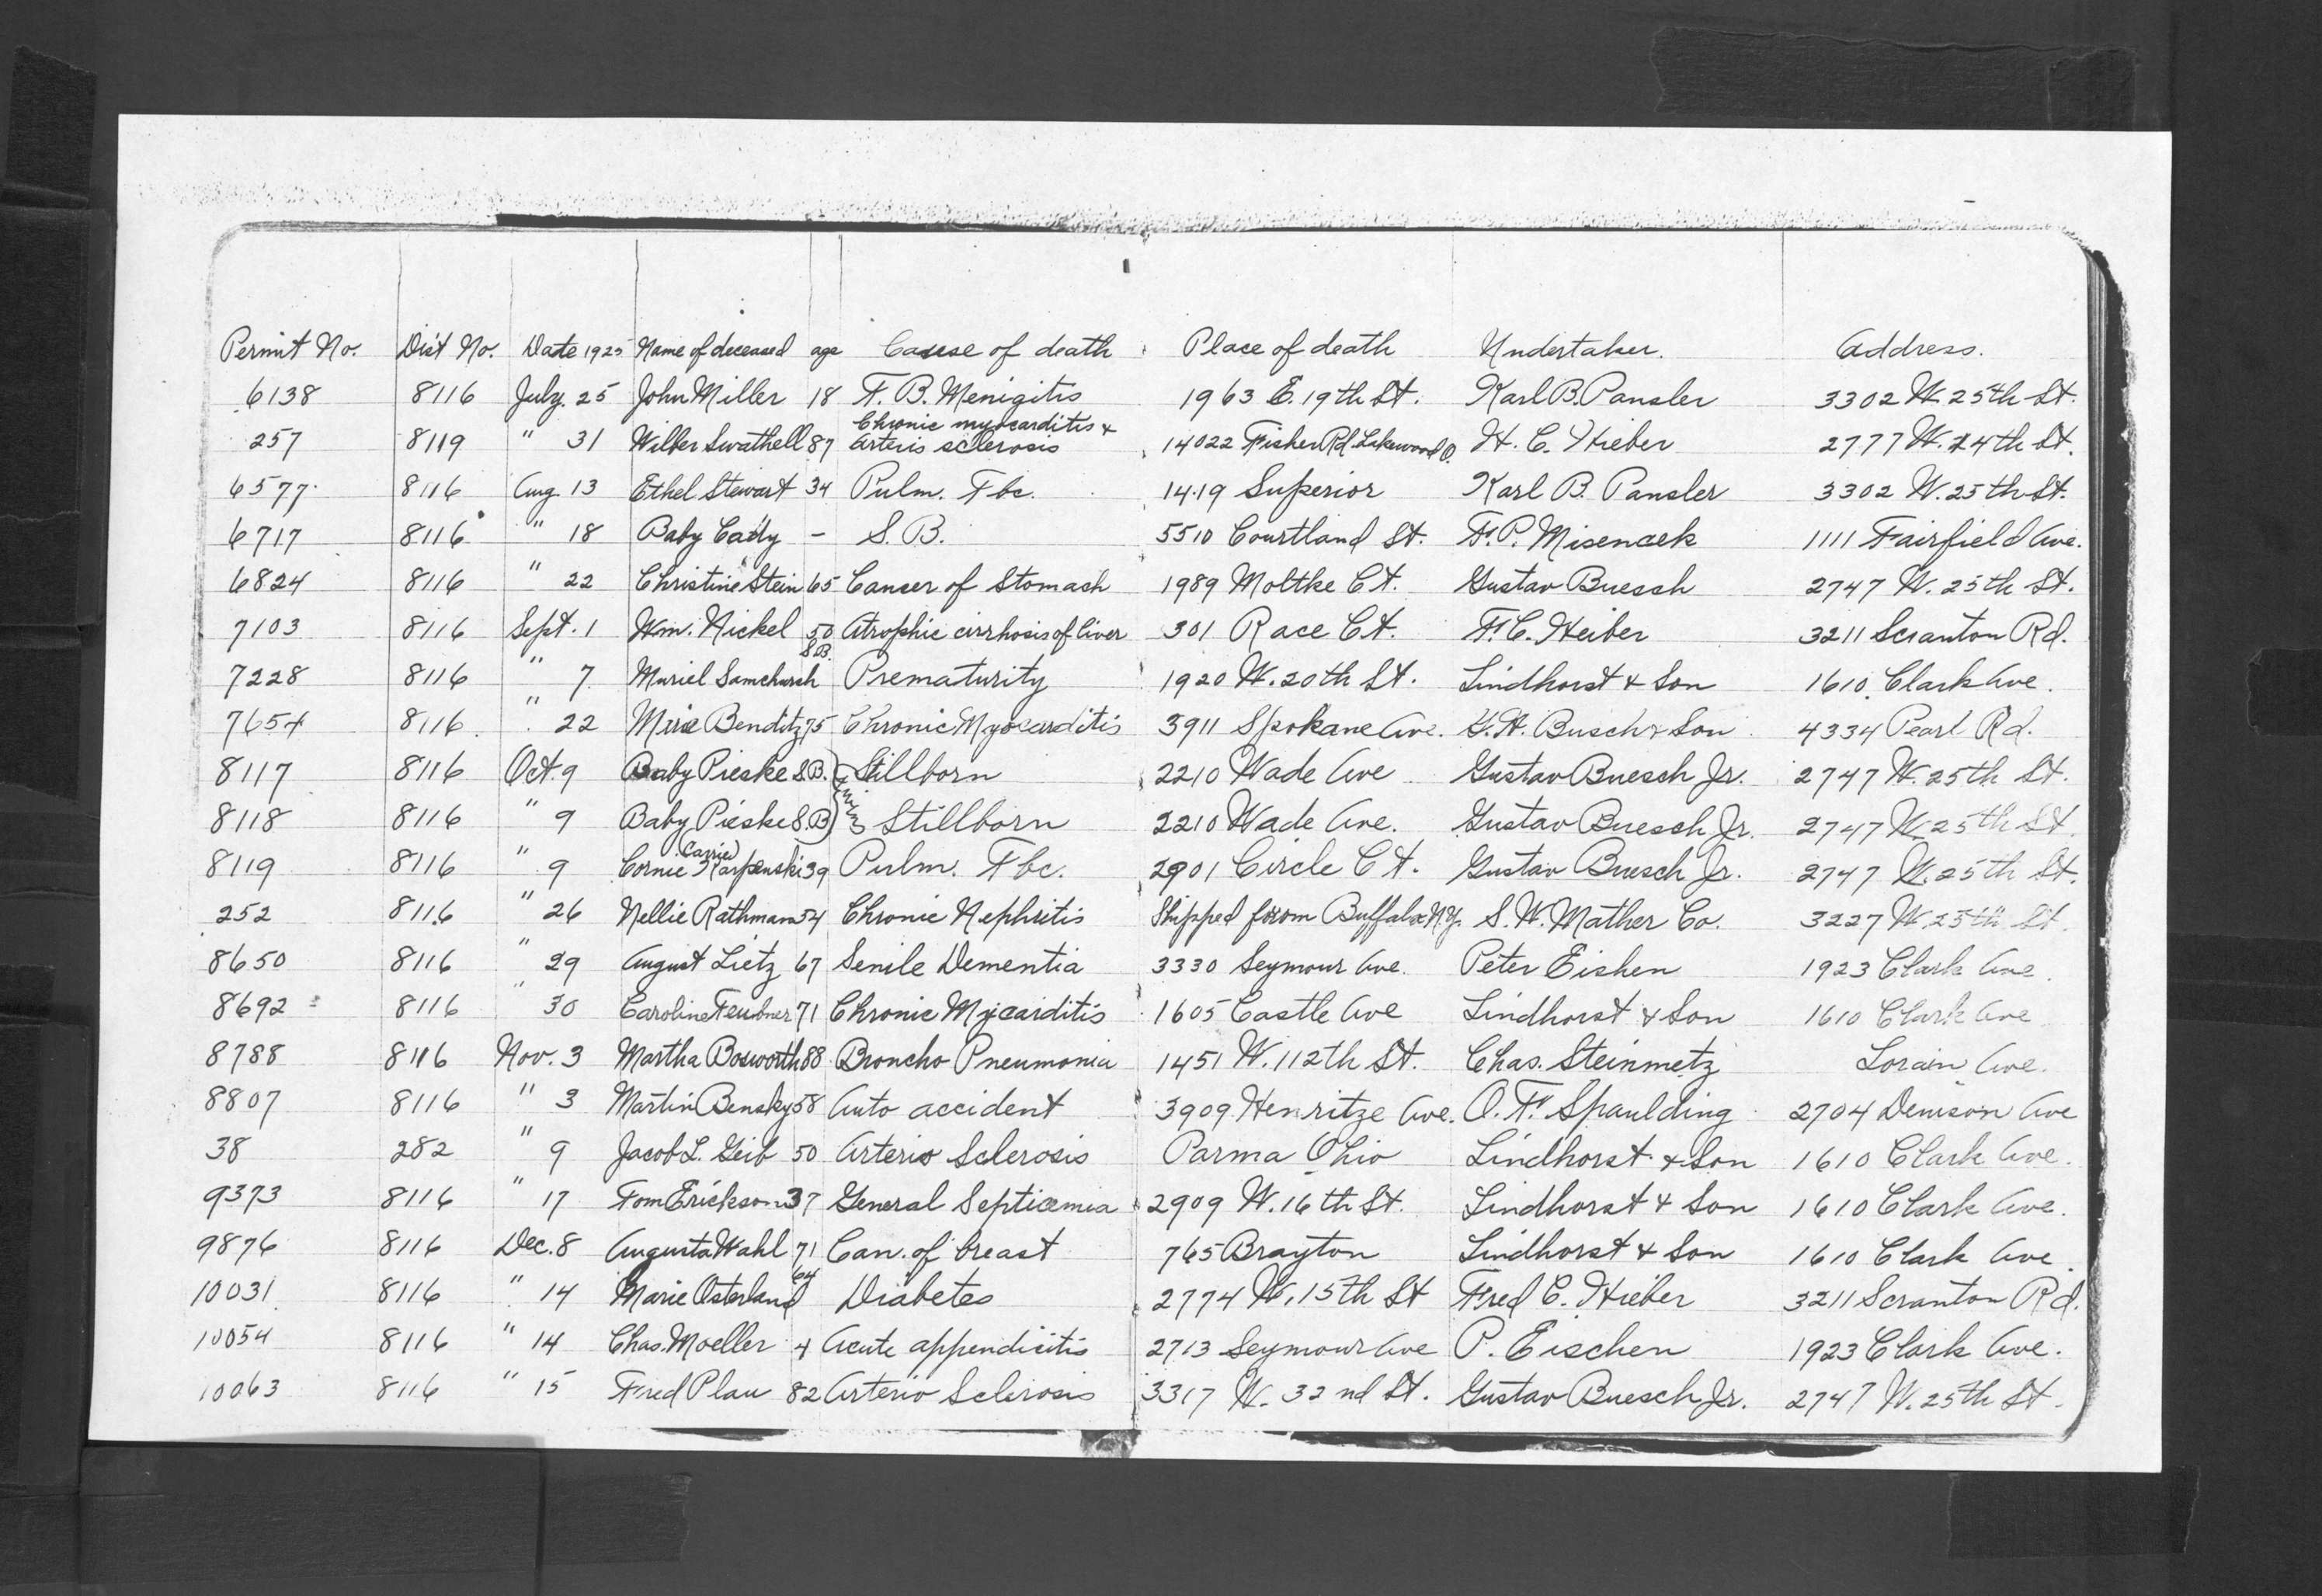 Permit No. Dist No. Date 1925 Name of deceased age Cause of death Place of death Undertaker. Address.
6138 8116 July. 25 John Miller 18 T. B. Menigitis 1963 E. 19th St. Karl B. Pansler 3302 W. 25th St.
257 8119 " 31 Wilber Swathell 87 Chronic myocarditis & arteris sclerosis 14022 Fisher Rd. Lakewood O. H. C. Hieber 2777 W. 14th St.
6577 8116 Aug. 13 Ethel Stewart 34 Pulm. Tbc. 1419 Superior Karl B. Pansler 3302 W. 25th St.
6717 8116 " 18 Baby Cady - S. B. 5510 Courtland St. F. P. Misencek 1111 Fairfield Ave.
6824 8116 " 22 Christine Stein 65 Cancer of Stomach 1989 Moltke Ct. Gustav Buesch 2747 W. 25th St.
7103 8116 Sept. 1 Wm. Nickel 50 Atrophic cirrhosis of liver 301 Race Ct. F. C. Heiber 3211 Scranton Rd.
7228 8116 " 7 Muriel Samchurch S.B. Prematurity 1920 W. 20th St. Lindhorst & Son 1610 Clark Ave.
7654 8116 " 22 Benditz 75 Chronic Myocarditis 3911 Spokane Ave. G. H. Busch & Son 4334 Pearl Rd.
8117 8116 Oct. 9 Baby Pieske S.B. Stillborn 2210 Wade Ave Gustav Buesch Jr. 2747 W. 25th St.
8118 8116 " 9 Baby Pieske S.B. Stillborn 2210 Wade Ave. Gustav Buesch Jr. 2747 W. 25th St.
8119 8116 " 9 Cornie (Carrie) Karpenski 39 Pulm. Tbc. 2901 Circle Ct. Gustav Buesch Jr. 2747 W. 25th St.
252 8116 " 26 Nellie Rathman 54 Chronic Nephritis Shipped from Buffalo N.Y. S. W. Mather Co. 3227 W. 25th St.
8650 8116 " 29 August Lietz 67 Senile Dementia 3330 Seymour Ave. Peter Eishen 1923 Clark Ave.
8692 8116 " 30 Caroline Teubner 71 Chronic Mycarditis 1605 Castle Ave Lindhorst & Son 1610 Clark Ave
8788 8116 Nov. 3 Martha Bosworth 88 Broncho Pneumonia 1451 W. 112th St. Chas. Steinmetz Lorain Ave.
8807 8116 " 3 Martin Bensky 58 Auto accident 3909 Henritze Ave. O. F. Spaulding 2704 Denison Ave
38 282 " 9 Jacob L. Geib 50 Arterio Sclerosis Parma Ohio Lindhorst & Son 1610 Clark Ave.
9373 8116 " 17 Tom Erickson 37 General Septicemia 2909 W. 16th St. Lindhorst & Son 1610 Clark Ave.
9876 8116 Dec. 8 Augusta Wahl 71 Can. of breast 765 Brayton Lindhorst & Son 1610 Clark Ave.
10031 8116 " 14 Marie Osterland 64 Diabetes 2774 W. 15th St Fred C. Hieber 3211 Scranton Rd.
10054 8116 " 14 Chas. Moeller 4 Acute appendicitis 2713 Seymour Ave P. Eischen 1923 Clark Ave.
10063 8116 " 15 Fred Plau 82 Arterio Sclerosis 3317 W. 32nd St. Gustav Buesch Jr. 2747 W. 25th St.